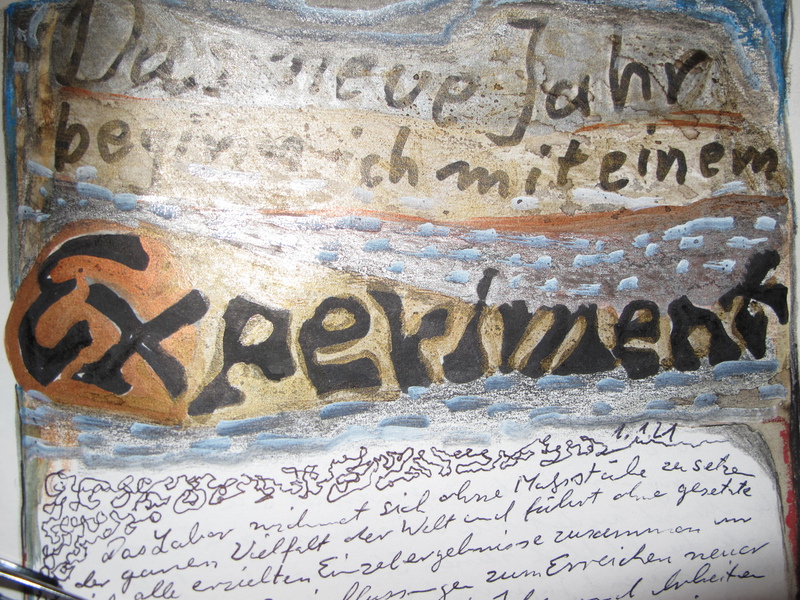 Das neue Jahr
beginne ich mit einem
Experiment
1.1.21
Das Labor widmet sich ohne Massstäbe zu setzen
der ganzen Vielfalt der Welt und führt ohne gesetzte
alle erzielten Einzelergebnisse zusammen um
zum Erreichen neuer
und Arbeiten